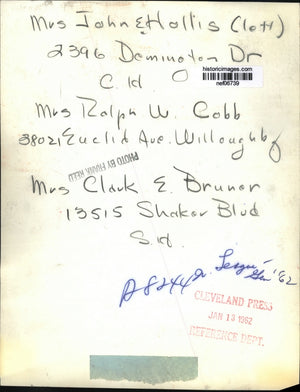 Mrs John E Hollis (left)
2396 Demington Dr
C. H
historicimages.com
nef06739
Mrs Ralph W. Cobb
38021 Euclid Ave. Willoughby
PHOTO BY FRANK REED
Mrs Clark E. Bruner
13515 Shaker Blvd
S. H.
'62
CLEVELAND PRESS
JAN 13 1962
REFERENCE DEPT.